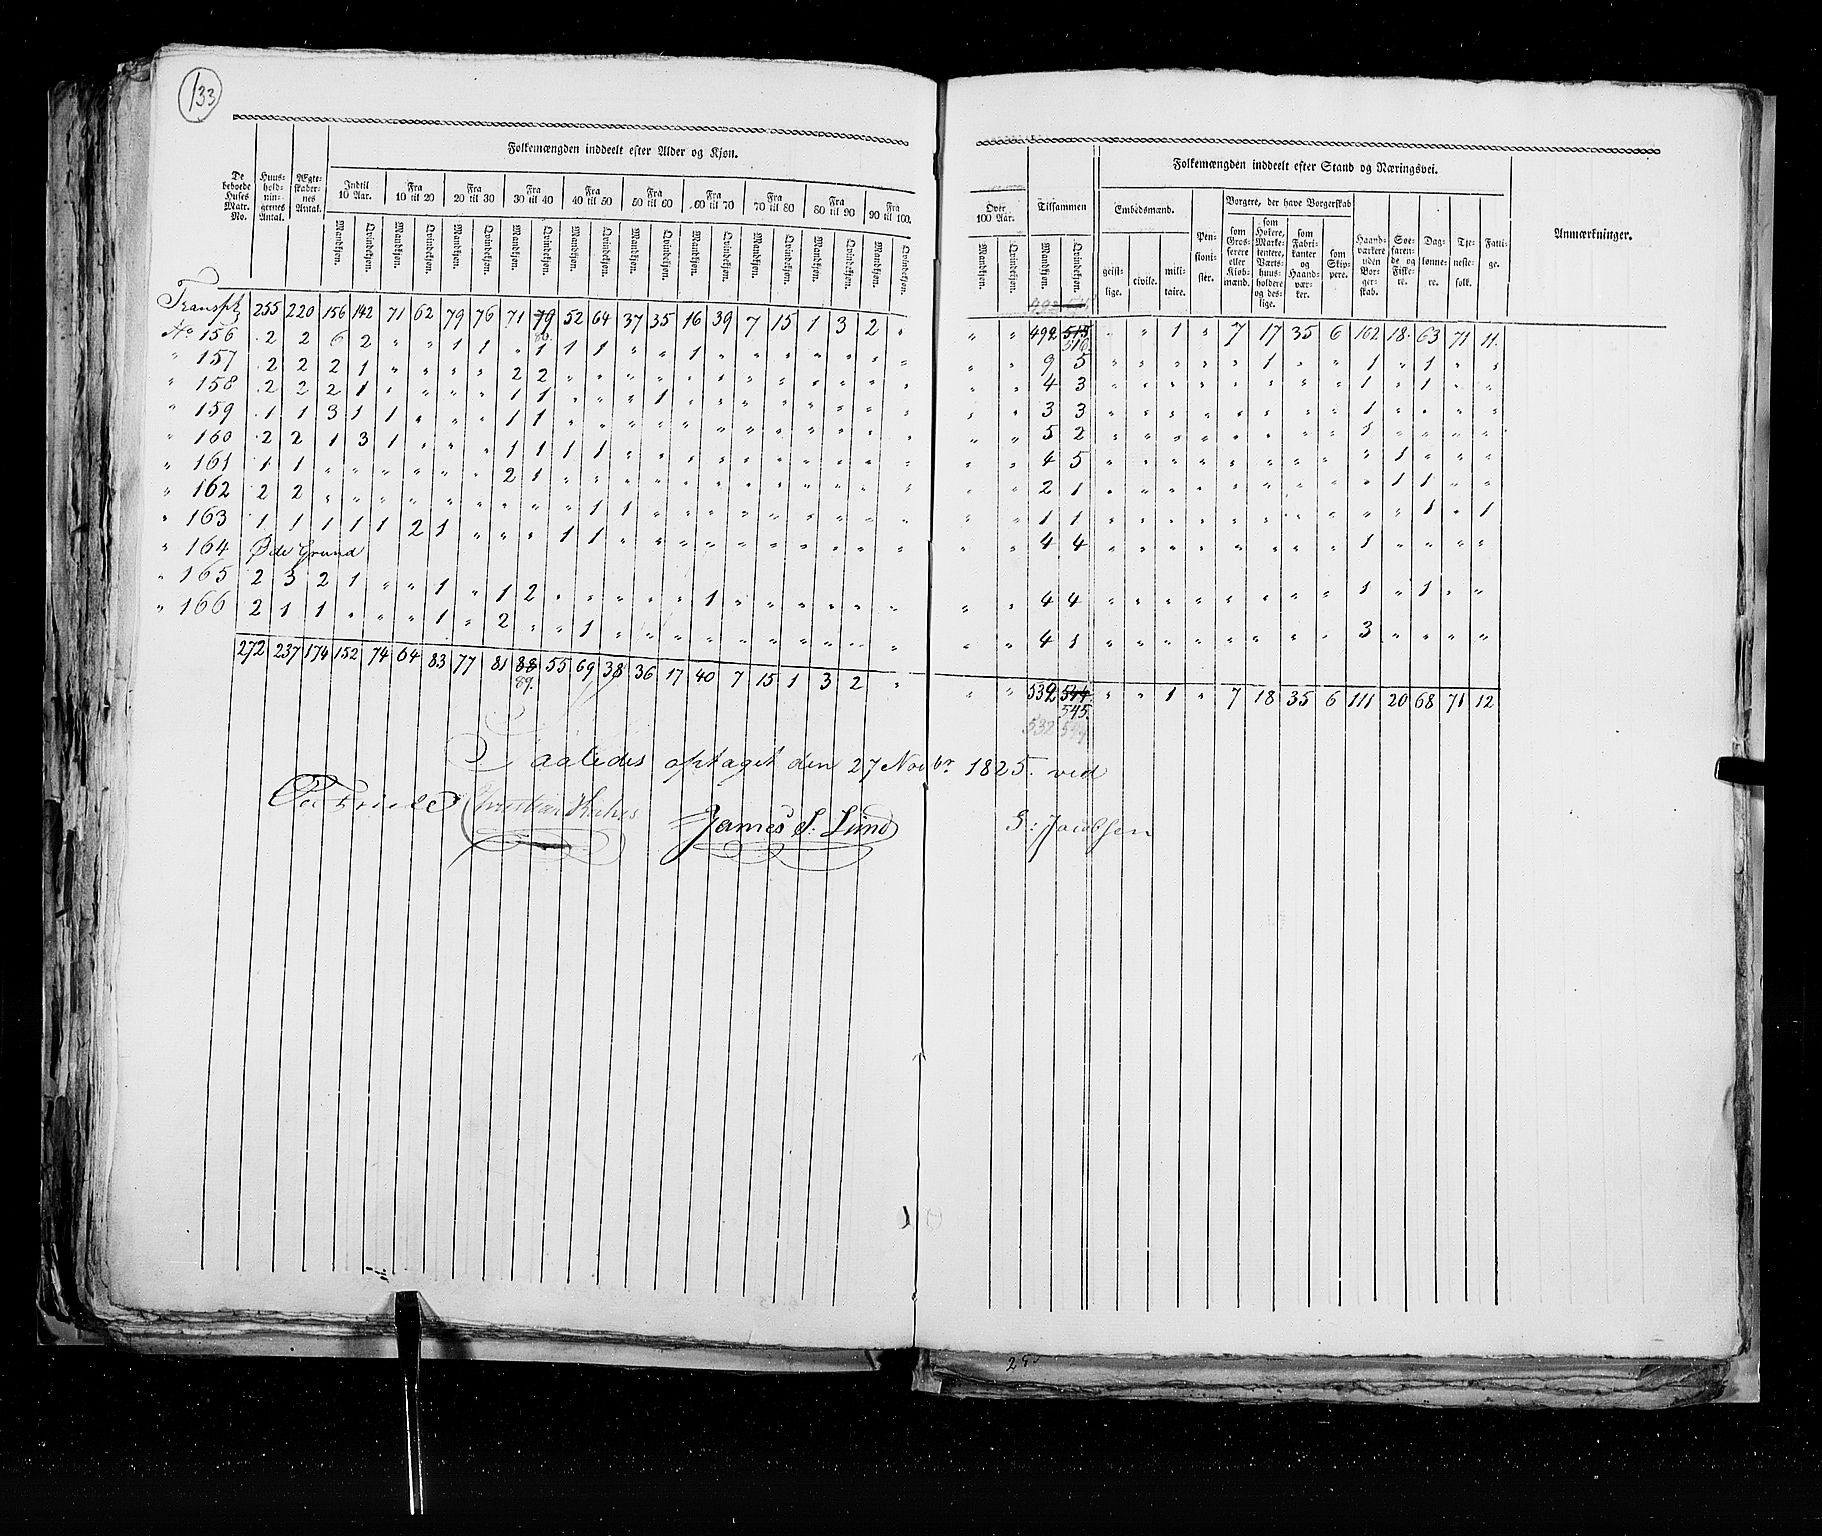 133
Folkemængden inddeelt efter Alder og Kjøn.
Folkemængden inddeelt efter Stand og Næringsvei.
De beboede Huses Matr. No.
Huus-hold-nin-gernes Antal.
Ægte-skaber-nes Antal.
Indtil 10 Aar.
Fra 10 til 20
Fra 20 til 30
Fra 30 til 40
Fra 40 til 50
Fra 50 til 60
Fra 60 til 70
Fra 70 til 80
Fra 80 til 90
Fra 90 til 100.
Over 100 Aar.
Tilsammen
Embedsmænd.
Pen-sioni-ster.
Borgere, der have Borgerskab
Haand-værkere uden Bor-ger-skab.
Søe-faren-de og Fiske-re.
Dag-lønne-re.
Tje-neste-folk.
Fatti-ge.
Anmærkninger.
Mandkjøn. Qvindekjøn. Mandkjøn. Qvindekjøn. Mandkjøn. Qvindekjøn. Mandkjøn. Qvindekjøn. Mandkjøn. Qvindekjøn. Mandkjøn. Qvindekjøn. Mandkjøn. Qvindekjøn. Mandkjøn. Qvindekjøn. Mandkjøn. Qvindekjøn. Mandkjøn. Qvindekjøn. Mandkjøn. Qvindekjøn. Mandkjøn. Qvindekjøn.
geist-lige. civile. mili-taire.
som Gros-serere eller Kjøb-mænd.
som Høkere, Marke-tentere, Værts-huus-holdere og des-lige.
som Fabri-kanter og Haand-vær-ker.
som Skip-pere.
Transpt 255 220 156 142 71 62 79 76 71 79 52 64 37 35 16 39 7 15 1 3 2 " " " 492 515 " " 1 " 7 17 35 6 102 18 63 71 11.
80. 516.
No 156 2 2 6 2 " " 1 1 " 1 1 1 " " 1 " " " " " " " " " 9 5 " " " " " 1 " " 1 " 1 " "
" 157 2 2 2 1 " " " " 2 2 " " " " " " " " " " " " " " 4 3 " " " " " " " " 1 " 1 " "
" 158 2 2 2 1 " " " " 1 1 " " " 1 " " " " " " " " " " 3 3 " " " " " " " " 1 " " " "
" 159 1 1 3 1 1 " " " 1 1 " " " " " " " " " " " " " " 5 2 " " " " " " " " 1 " " " "
" 160 2 2 1 3 1 " " " 1 1 1 1 " " " " " " " " " " " " 4 5 " " " " " " " " " 1 " " "
" 161 1 1 " " " " " " 2 1 " " " " " " " " " " " " " " 2 1 " " " " " " " " " 1 1 " "
" 162 2 2 " " " " " " " " 1 1 " " " " " " " " " " " " 1 1 " " " " " " " " " " 1 " 1
" 163 1 1 1 1 1 2 1 " " " 1 1 " " " " " " " " " " " " 4 4 " " " " " " " " 1 " " " "
" 164 Øde Grund
" 165 2 3 2 1 " " 1 " 1 2 " " " " " 1 " " " " " " " " 4 4 " " " " " " " " 1 " 1 " "
" 166 2 1 1 " " " 1 " 2 " " 1 " " " " " " " " " " " " 4 1 " " " " " " " " 3 " " " "
272 237 174 152 74 64 83 77 81 88 55 69 38 36 17 40 7 15 1 3 2 " " " 532 544 " " 1 " 7 18 35 6 111 20 68 71 12
89. 545.
Saaledes optaget den 27 Novbr. 1825. ved
James S. Lund
S: Jacobsen